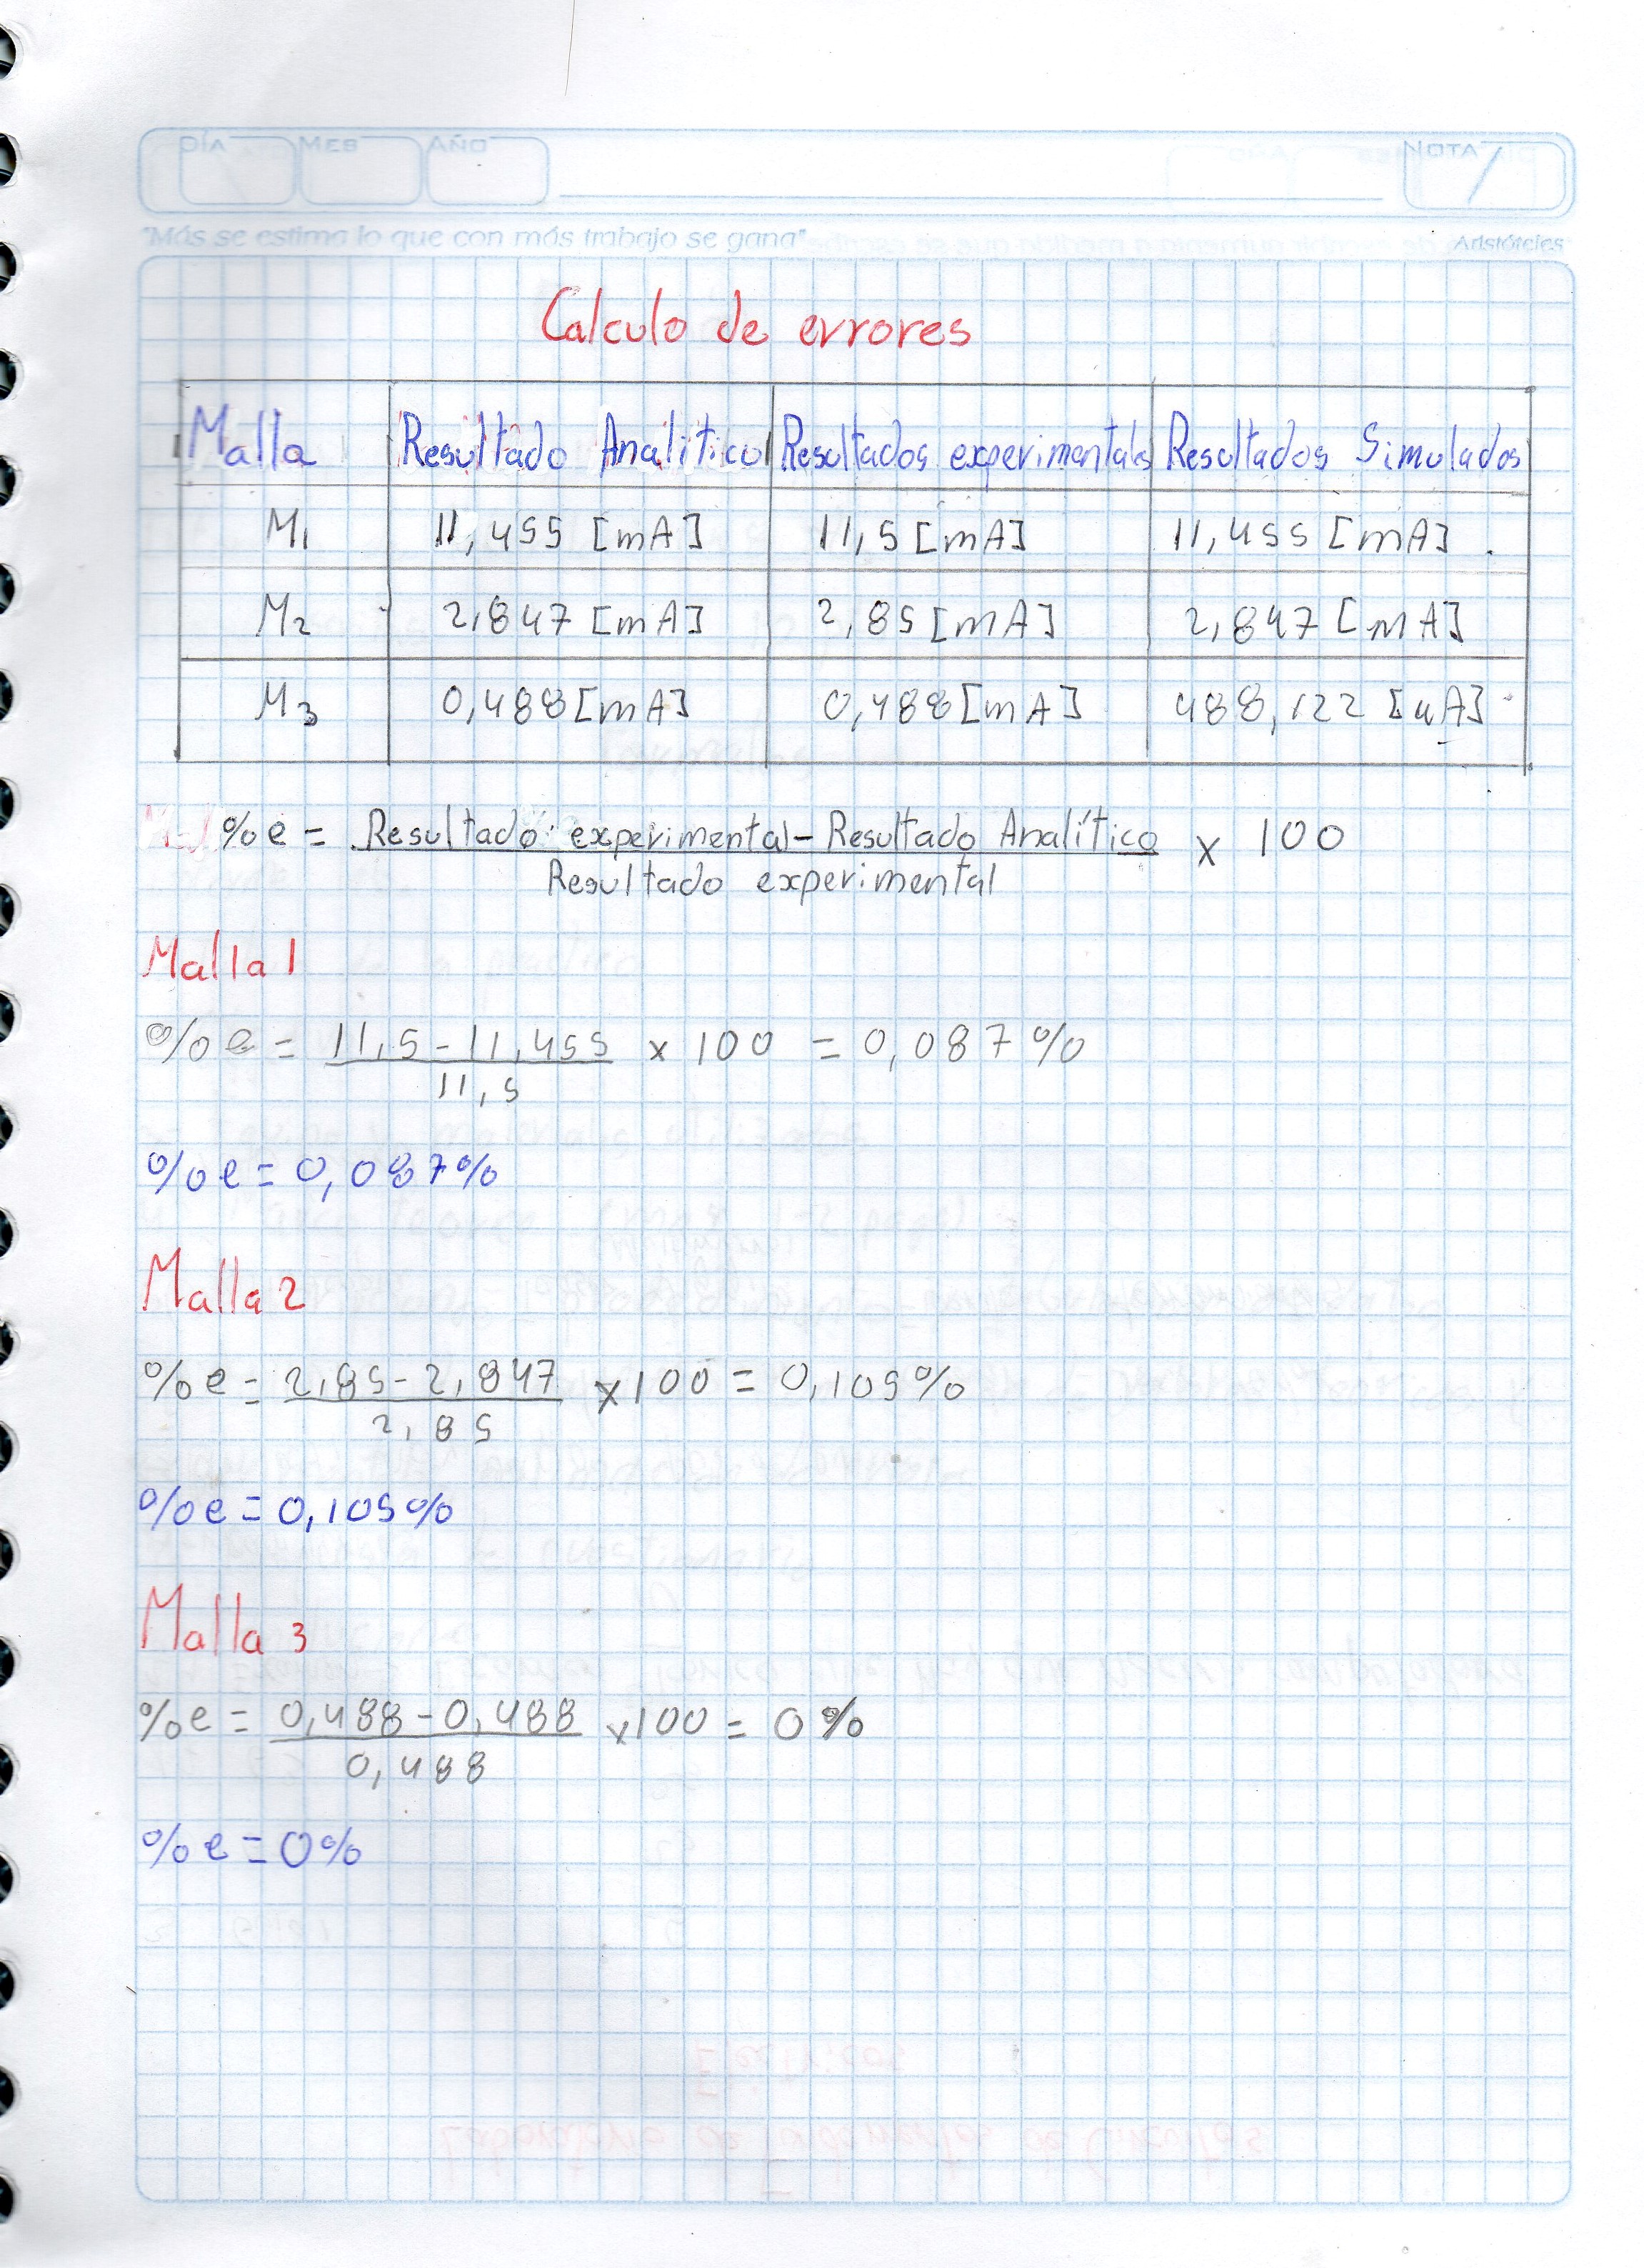 DÍA MES AÑO NOTA
"Más se estima lo que con más trabajo se gana" Aristóteles
Calculo de errores
Malla Resultado Analitico Resultados experimentales Resultados Simulados
M1 11,455 [mA] 11,5 [mA] 11,455 [mA]
M2 2,847 [mA] 2,85 [mA] 2,847 [mA]
M3 0,488 [mA] 0,488 [mA] 488,122 [uA]
%e = Resultado experimental - Resultado Analítico x 100
Resultado experimental
Malla 1
%e = 11,5 - 11,455 x 100 = 0,087%
11,5
%e = 0,087%
Malla 2
%e = 2,85 - 2,847 x 100 = 0,105%
2,85
%e = 0,105%
Malla 3
%e = 0,488 - 0,488 x 100 = 0%
0,488
%e = 0%